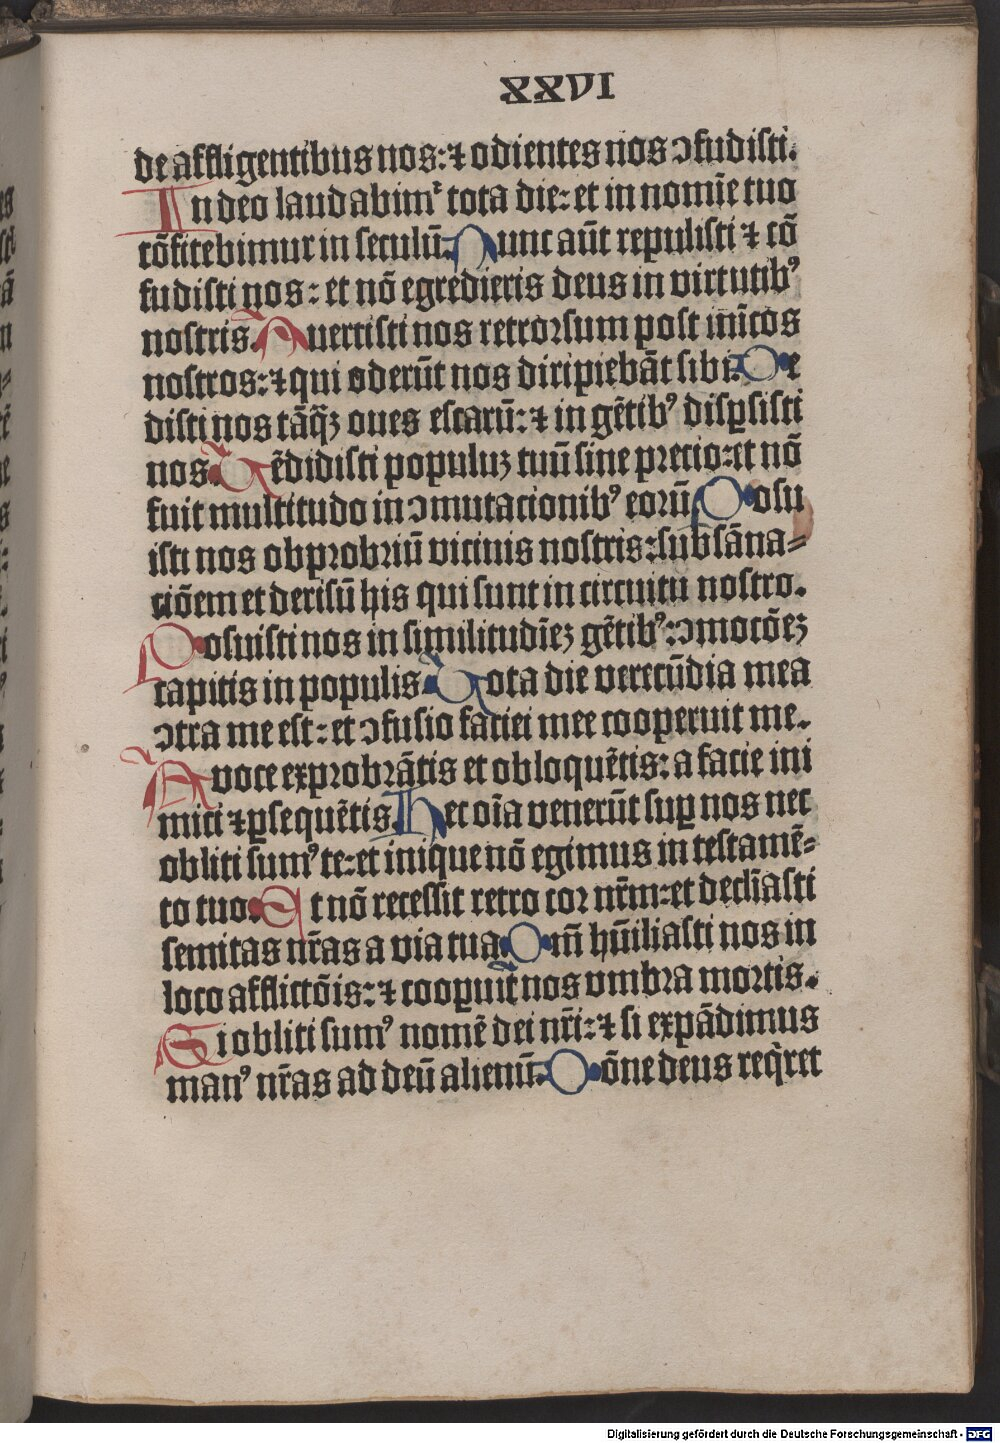 XXVI
de affligentibus nos: ⁊ odientes nos ↄfudisti.
In deo laudabimꝰ tota die: et in nomīe tuo
cōfitebimur in seculū. Nunc aūt repulisti ⁊ cō
fudisti nos: et nō egredieris deus in virtutibꝰ
nostris. Auertisti nos retrorsum post inīcos
nostros: ⁊ qui oderūt nos diripiebāt sibi. De
disti nos tāq̄ꝫ oues escarū: ⁊ in gētibꝰ disꝑsisti
nos. Uēdidisti populuꝫ tuū sine precio: et nō
fuit multitudo in ↄmutacionibꝰ eorū. Posu
isti nos obprobriū vicinis nostris: subsāna=
ciōem et derisū his qui sunt in circuitu nostro.
Posuisti nos in similitudīeꝫ gētibꝰ: ↄmocōeꝫ
capitis in populis. Tota die verecūdia mea
ↄtra me est: et ↄfusio faciei mee cooperuit me.
A voce exprobrātis et obloquētis: a facie ini
mici ⁊ ꝑsequētis. Hec oīa venerūt suꝑ nos nec
obliti sumꝰ te: et inique nō egimus in testamē=
to tuo. Et nō recessit retro cor nr̄m: et declīasti
semitas nr̄as a via tua. Qm̄ hūiliasti nos in
loco afflictōis: ⁊ cooꝑuit̄ nos vmbra mortis.
Si obliti sumꝰ nomē dei nr̄i: ⁊ si expādimus
manꝰ nr̄as ad deū alienū. Nōne deus req̇ret
Digitalisierung gefördert durch die Deutsche Forschungsgemeinschaft - DFG